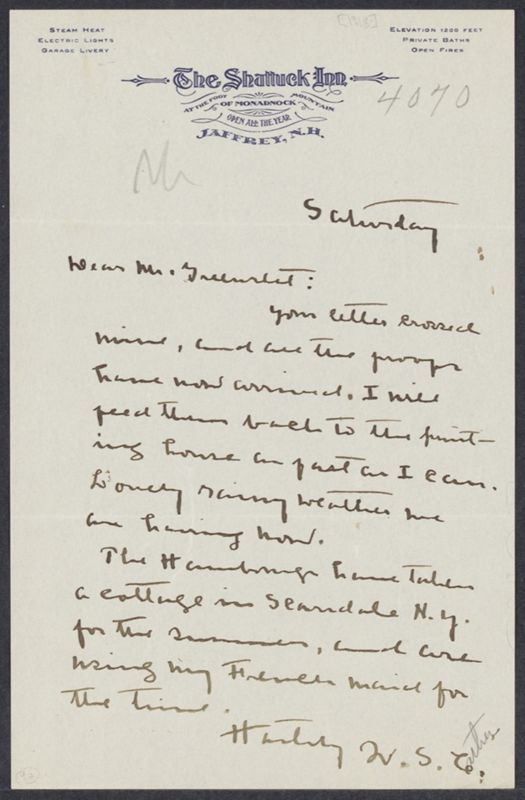 [1918]
STEAM HEAT
ELECTRIC LIGHTS
GARAGE LIVERY
ELEVATION 1200 FEET
PRIVATE BATHS
OPEN FIRES
The Shattuck Inn
AT THE FOOT OF MONADNOCK MOUNTAIN
OPEN ALL THE YEAR
JAFFREY, N.H.
4070
Saturday
Dear Mr. Greenslet:
Your letter crossed
mine, and all the proofs
have now arrived. I will
feed them back to the print-
ing house as fast as I can.
Lonely rainy weather we
are having now.
The Hambourgs have taken
a cottage in Scarsdale N.Y.
for the summer, and are
using my French maid for
the time.
Hastily W. S. C.
ather